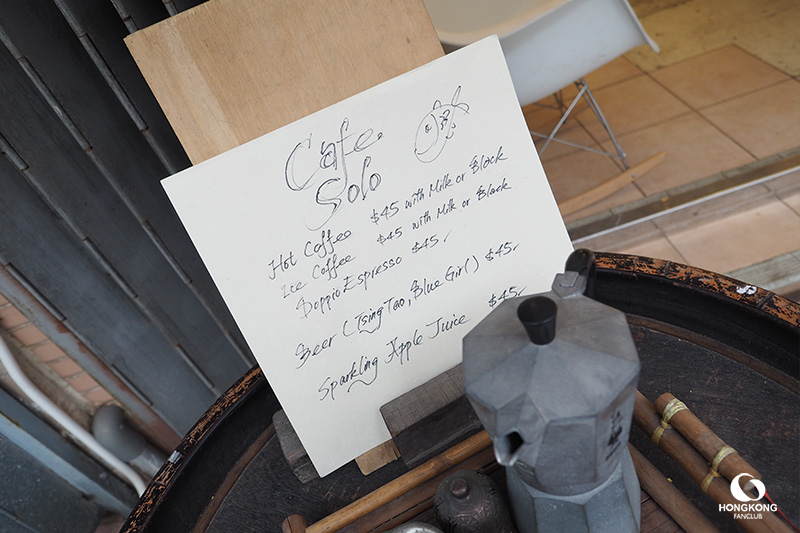 Cafe
Solo
Hot Coffee $45 with Milk or Black
Ice Coffee $45 with Milk or Black
Doppio Espresso $45
Beer (Tsing Tao, Blue Girl) $45
Sparkling Apple Juice $45
HONGKONG
FANCLUB